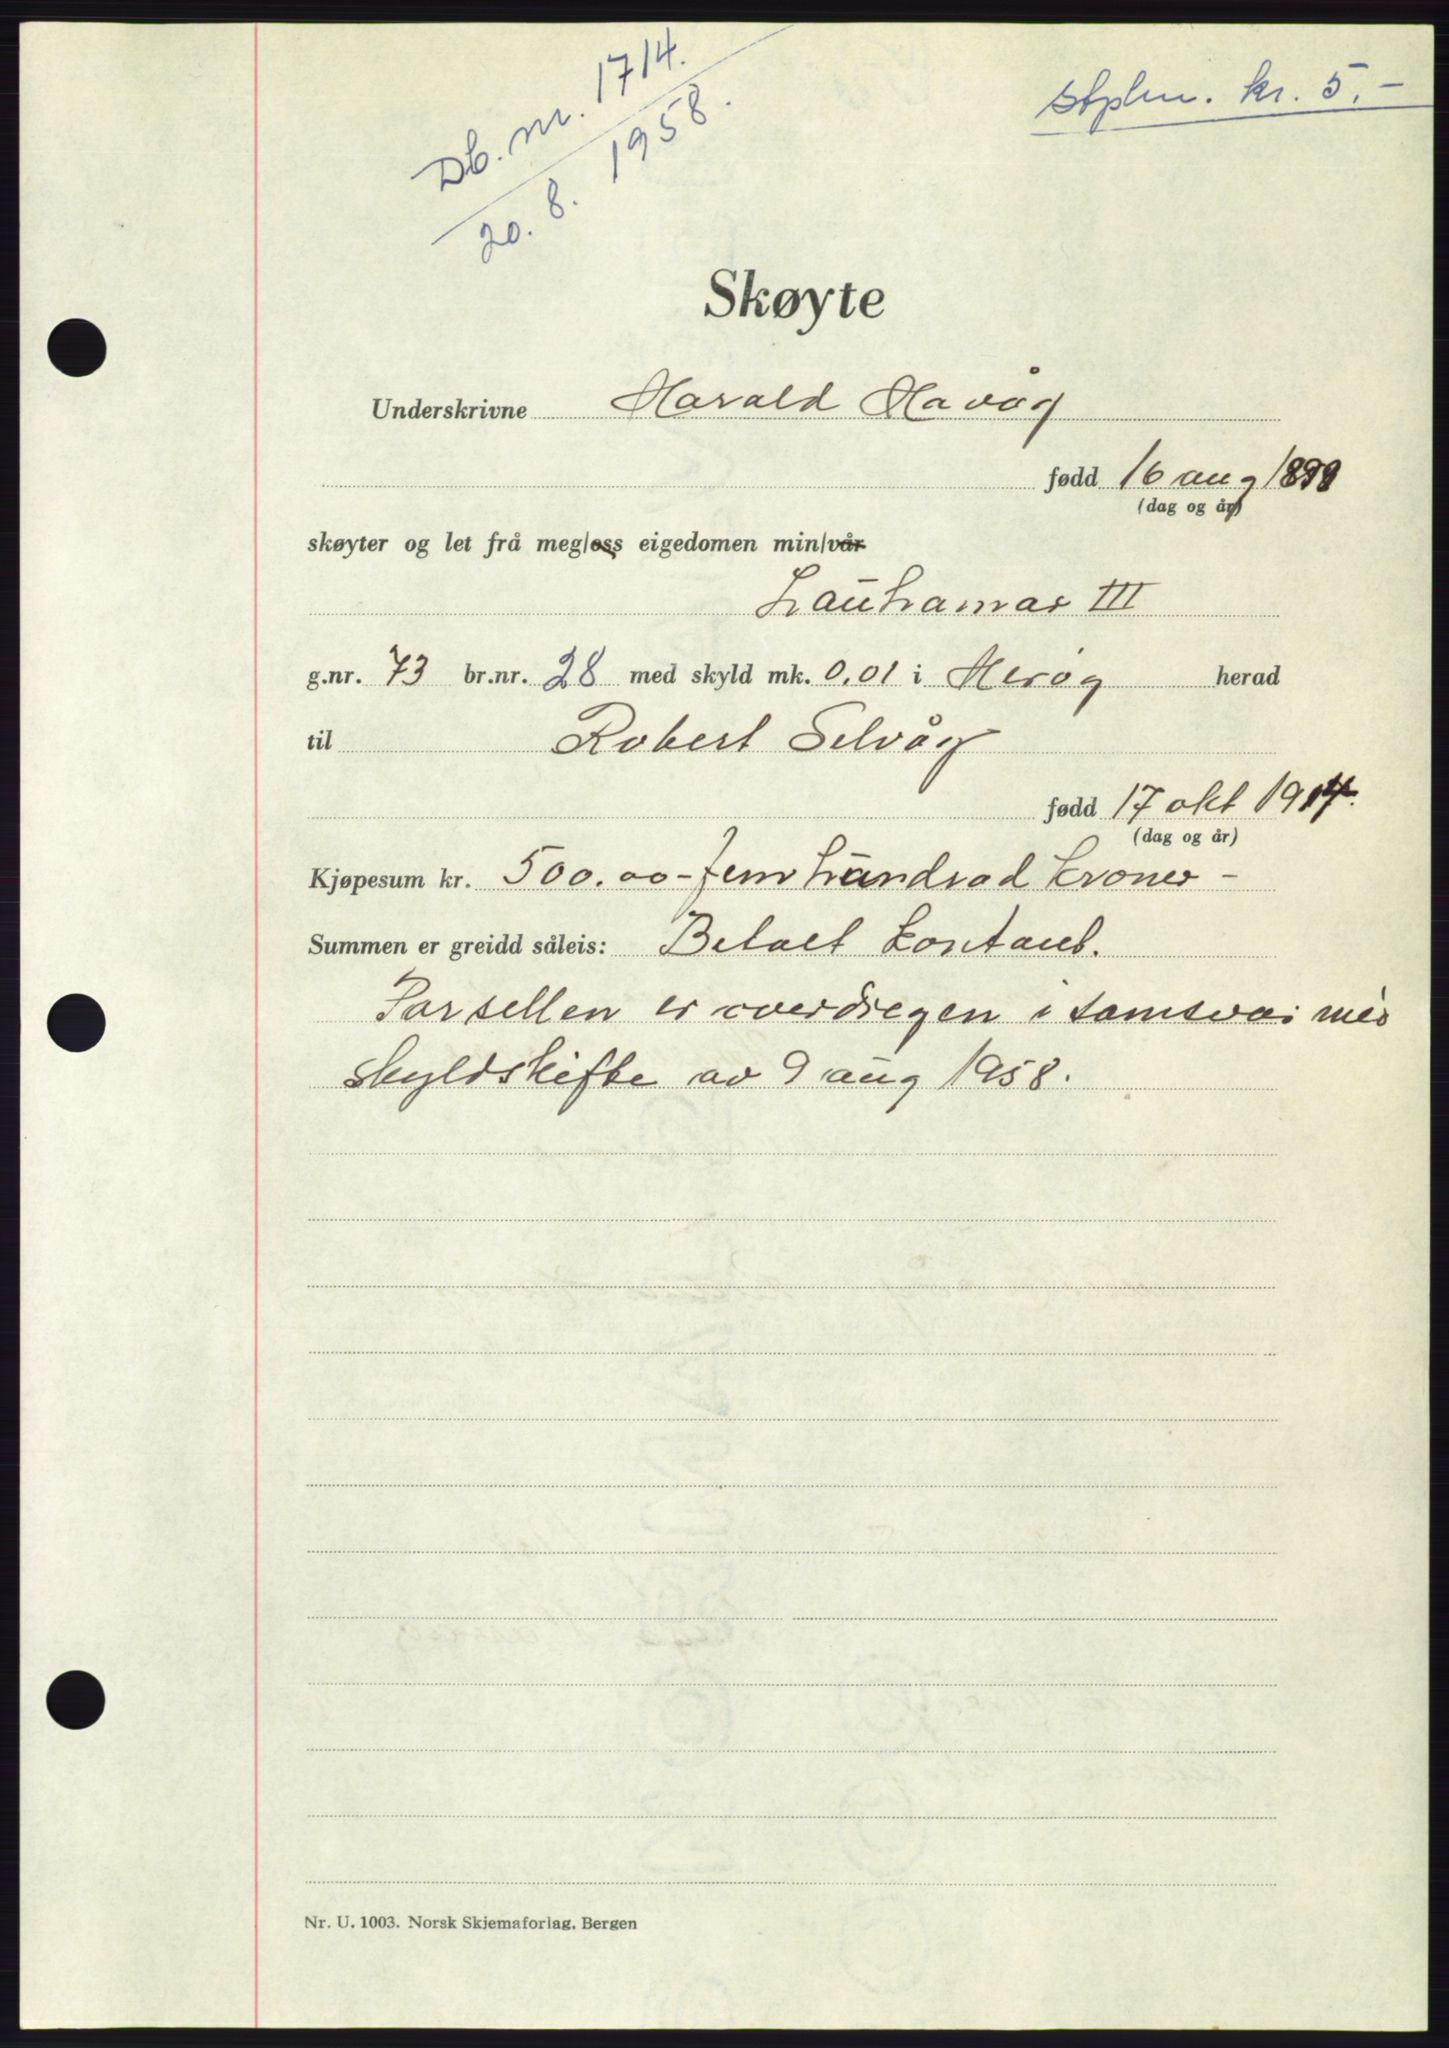 Db. nr. 1714.
20. 8. 1958.
Stplm. kr. 5.-
Skøyte
Underskrivne Harald Havåg
fødd 16 aug 1899
(dag og år)
skøyter og let frå meg/oss eigedomen min/vår
Lauhamar III
g.nr. 73 br.nr. 28 med skyld mk. 0,01 i Herøy herad
til Robert Selvåg
fødd 17 okt 1914.
(dag og år)
Kjøpesum kr. 500.00 - fem hundrad kroner -
Summen er greidd såleis: Betalt kontant.
Parsellen er overdregen i samsvar med
skyldskifte av 9 aug 1958.
Nr. U. 1003. Norsk Skjemaforlag, Bergen